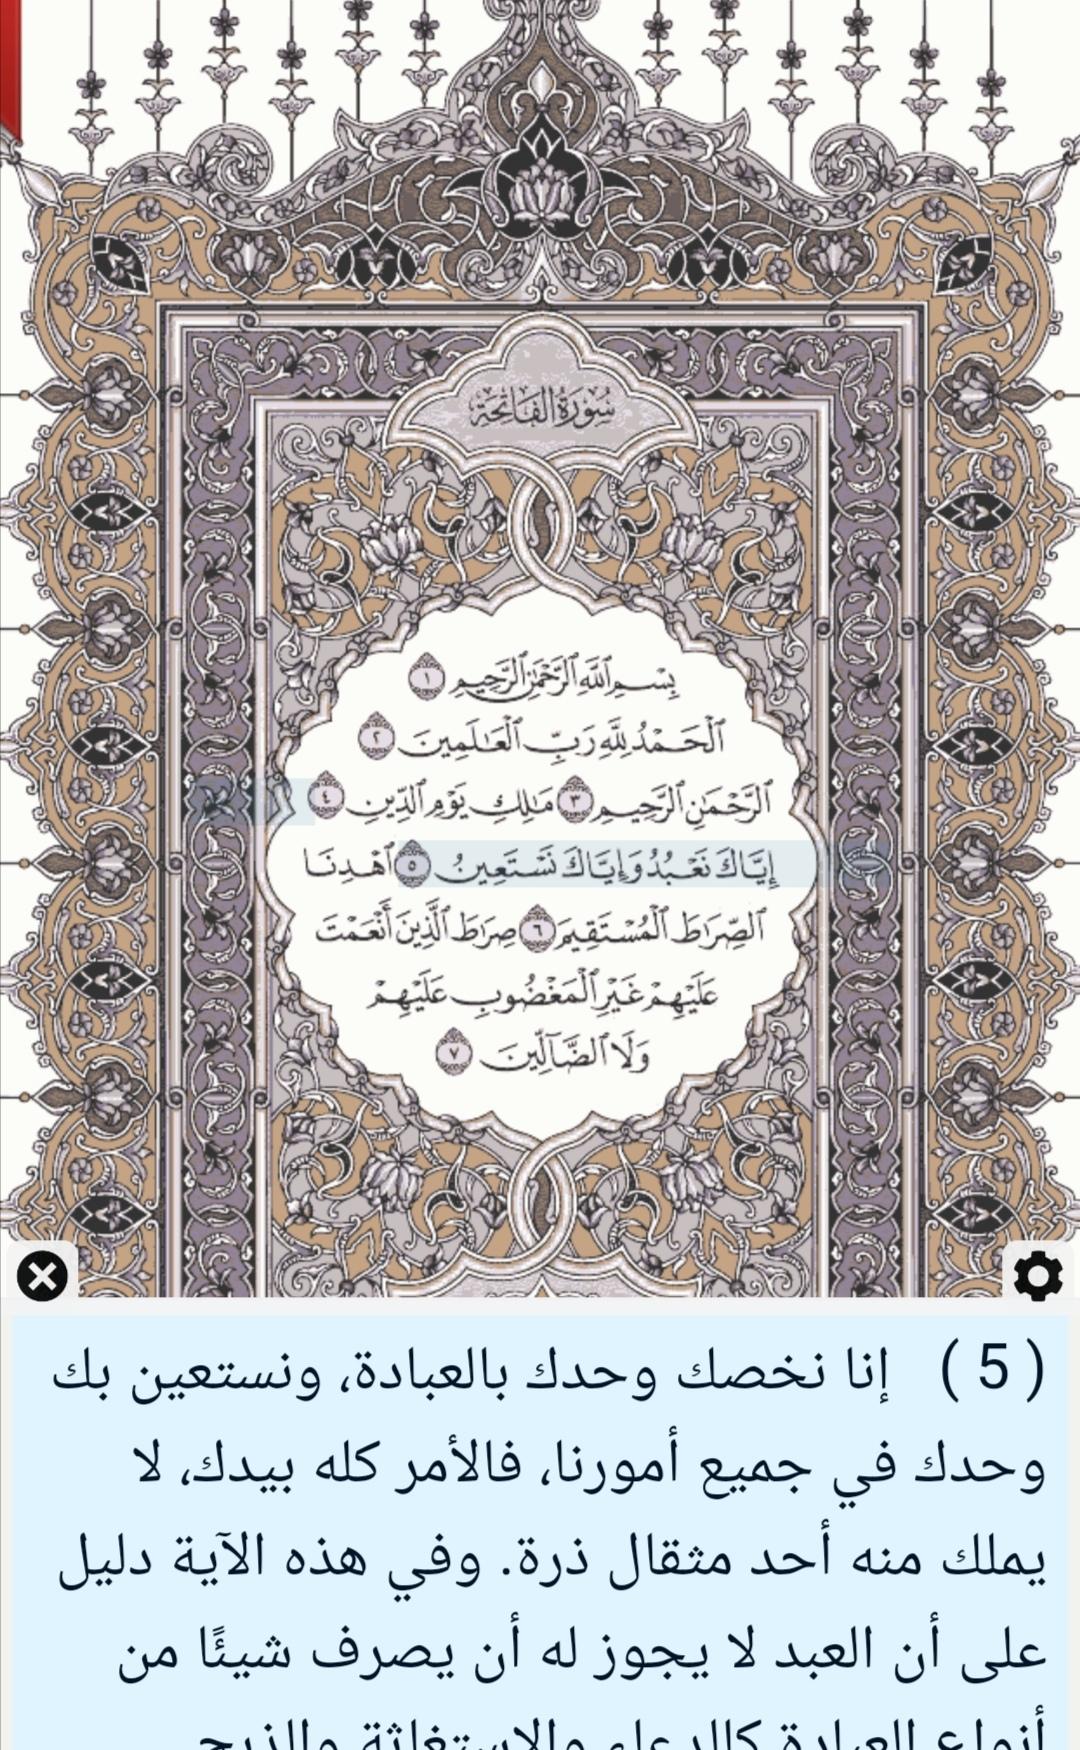 سُورَةُ الفَاتِحَةِ
بِسْمِ ٱللَّهِ ٱلرَّحْمَٰنِ ٱلرَّحِيمِ ١
ٱلْحَمْدُ لِلَّهِ رَبِّ ٱلْعَٰلَمِينَ ٢
ٱلرَّحْمَٰنِ ٱلرَّحِيمِ ٣ مَٰلِكِ يَوْمِ ٱلدِّينِ ٤
إِيَّاكَ نَعْبُدُ وَإِيَّاكَ نَسْتَعِينُ ٥ ٱهْدِنَا
ٱلصِّرَٰطَ ٱلْمُسْتَقِيمَ ٦ صِرَٰطَ ٱلَّذِينَ أَنْعَمْتَ
عَلَيْهِمْ غَيْرِ ٱلْمَغْضُوبِ عَلَيْهِمْ
وَلَا ٱلضَّآلِّينَ ٧
( 5 ) إنا نخصك وحدك بالعبادة، ونستعين بك
وحدك في جميع أمورنا، فالأمر كله بيدك، لا
يملك منه أحد مثقال ذرة. وفي هذه الآية دليل
على أن العبد لا يجوز له أن يصرف شيئًا من
أنواع العبادة كالدعاء والاستغاثة والذبح